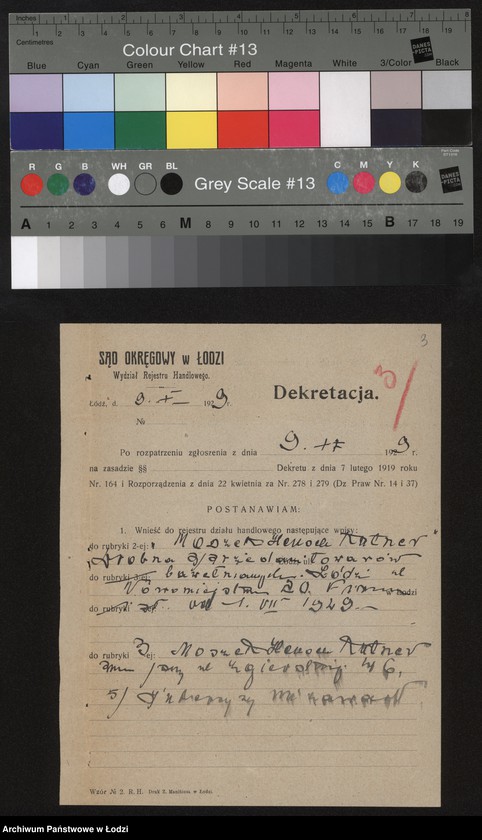 Inches 1 2 3 4 5 6 7 8
Centimetres 1 2 3 4 5 6 7 8 9 10 11 12 13 14 15 16 17 18 19
Colour Chart #13
DANES-PICTA.COM
Blue Cyan Green Yellow Red Magenta White 3/Color Black
R G B WH GR BL Grey Scale #13 C M Y K
A 1 2 3 4 5 6 M 8 9 10 11 12 13 14 15 B 17 18 19
3
SĄD OKRĘGOWY w ŁODZI
Wydział Rejestru Handlowego.
3/
Łódź, d. 9. XI 1929 r.
Dekretacja.
№
Po rozpatrzeniu zgłoszenia z dnia 9. 1929 r.
na zasadzie §§ Dekretu z dnia 7 lutego 1919 roku
Nr. 164 i Rozporządzenia z dnia 22 kwietnia za Nr. 278 i 279 (Dz. Praw Nr. 14 i 37)
POSTANAWIAM:
1. Wnieść do rejestru działu handlowego następujące wpisy:
do rubryki 2-ej: "Moszek Henoch Kutner"
Drobna sprzedaż towarów
do rubryki 3-ej: bawełnianych. Łódź ul
Nowomiejska 20.
do rubryki od 1. VII 1929.
do rubryki 3 ej: Moszek Henoch Kutner
zam ul Zgierska 6.
5/
Wzór № 2. R. H. Druk Z. Manitiusa, w Łodzi.
Archiwum Państwowe w Łodzi